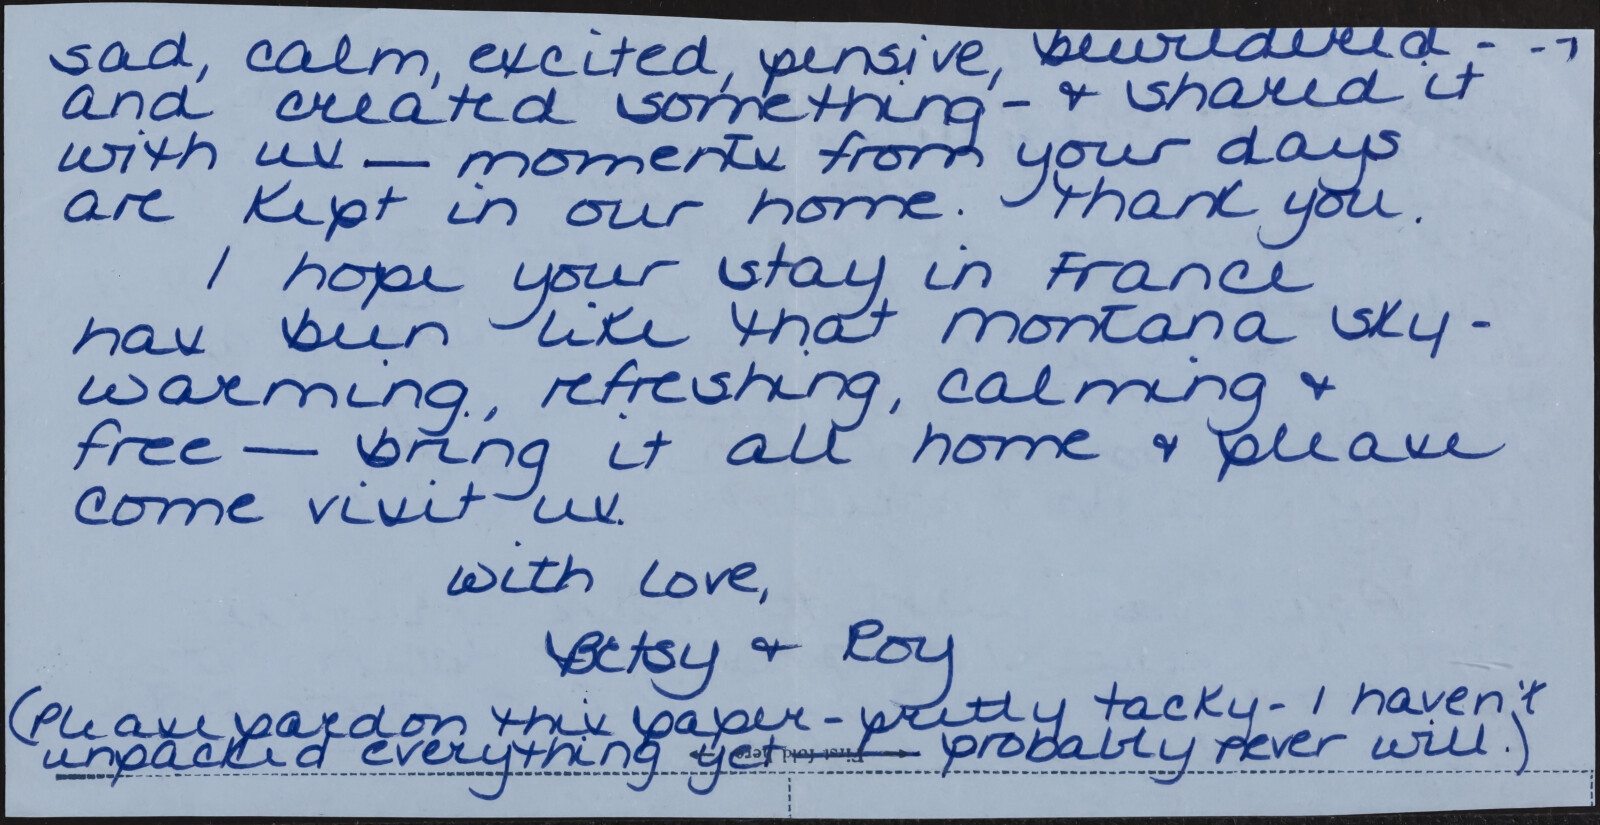 sad, calm, excited, pensive, bewildered - - -
and created something - & shared it
with us — moments from your days
are kept in our home. Thank you.
I hope your stay in France
has been like that Montana sky -
warming, refreshing, calming &
free — bring it all home & please
come visit us.
with love,
Betsy & Roy
(Please pardon this paper - pretty tacky - I haven't
unpacked everything yet — probably never will.)
First fold here